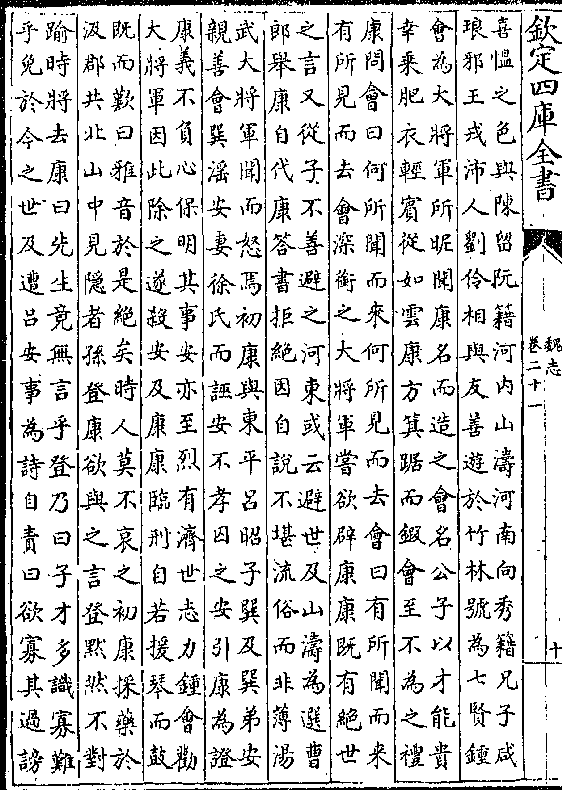 欽定四庫全書
魏志
卷二十一
十
喜愠之色與陳留阮籍河内山濤河南向秀籍兄子咸
琅邪王戎沛人劉伶相與友善遊於竹林號為七賢鍾
會為大將軍所昵聞康名而造之會名公子以才能貴
幸乗肥衣輕賓從如雲康方箕踞而鍛會至不為之禮
康問會曰何所聞而來何所見而去會曰有所聞而来
有所見而去會深銜之大將軍嘗欲辟康康既有絶世
之言又從子不善避之河東或云避世及山濤為選曹
郎舉康自代康答書拒絶因自說不堪流俗而非薄湯
武大將軍聞而怒焉初康與東平呂昭子巽及巽弟安
親善會巽淫安妻徐氏而誣安不孝囚之安引康為證
康義不負心保明其事安亦至烈有濟世志力鍾會勸
大將軍因此除之遂殺安及康康臨刑自若援琴而鼓
既而歎曰雅音於是絶矣時人莫不哀之初康採藥於
汲郡共北山中見隱者孫登康欲與之言登默然不對
踰時將去康曰先生竟無言乎登乃曰子才多識寡難
乎免於今之世及遭呂安事為詩自責曰欲寡其過謗